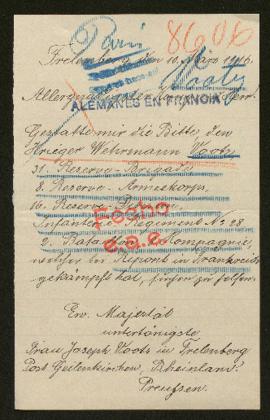 Paris
86606
Frelenberg, den 10. März 1916.
Voots
Allergnädigster Herr!
ALEMANES EN FRANCIA
Gestatte mir die Bitte, den
Krieger Wehrmann Voots,
31. Reserve-Brigade
8. Reserve-Armeekorps,
16. Reserve-Division
Infanterie Regiment No 28
2. Bataillon, Compagnie,
welcher bei in Frankreich
gekämpft hat, zu
Ew. Majestät
untertänigste
Frau Joseph Voots in Frelenberg
Post Geilenkirchen, Rheinland.
Preussen.